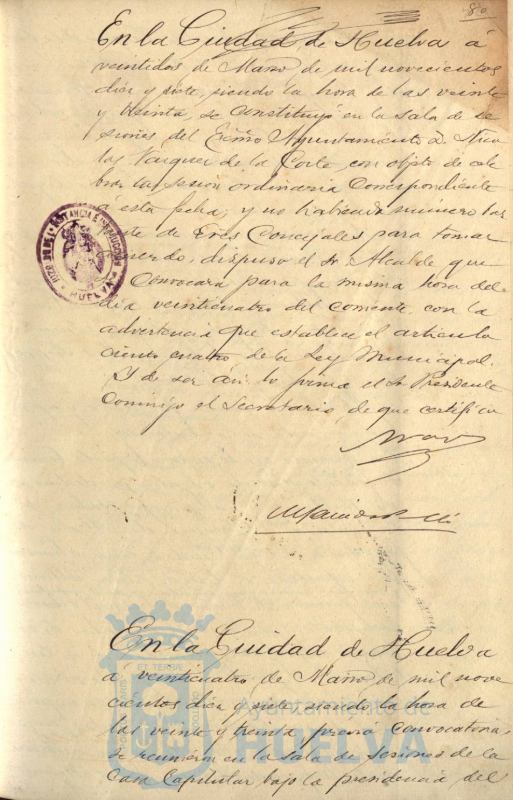 80
En la Ciudad de Huelva á
veintidos de Marzo de mil novecientos
diez y siete, siendo la hora de las veinte
y treinta, se constituyó en la Sala de se
siones del Excmo Ayuntamiento D. Nico
las Vazquez de la Corte, con objeto de cele
brar la sesion ordinaria correspondiente
á esta fecha, y no habiendo número bas
te de Sres Concejales para tomar
acuerdo, dispuso el Sr Alcalde que
Convocara para la misma hora del
dia veinticuatro del corriente con la
advertencia que establece el articulo
ciento cuatro de la Ley Municipal.
Y de ser asi lo firma el Sr Presidente
Conmigo el Secretario, de que certifico
HUELVA
En la Ciudad de Huelva
á veinticuatro de Marzo de mil nove
cientos diez y siete, siendo la hora de
las veinte y treinta previa Convocatoria,
se reunieron en la sala de Sesiones de la
Casa Capitular bajo la presidencia del
Ayuntamiento de
HUELVA